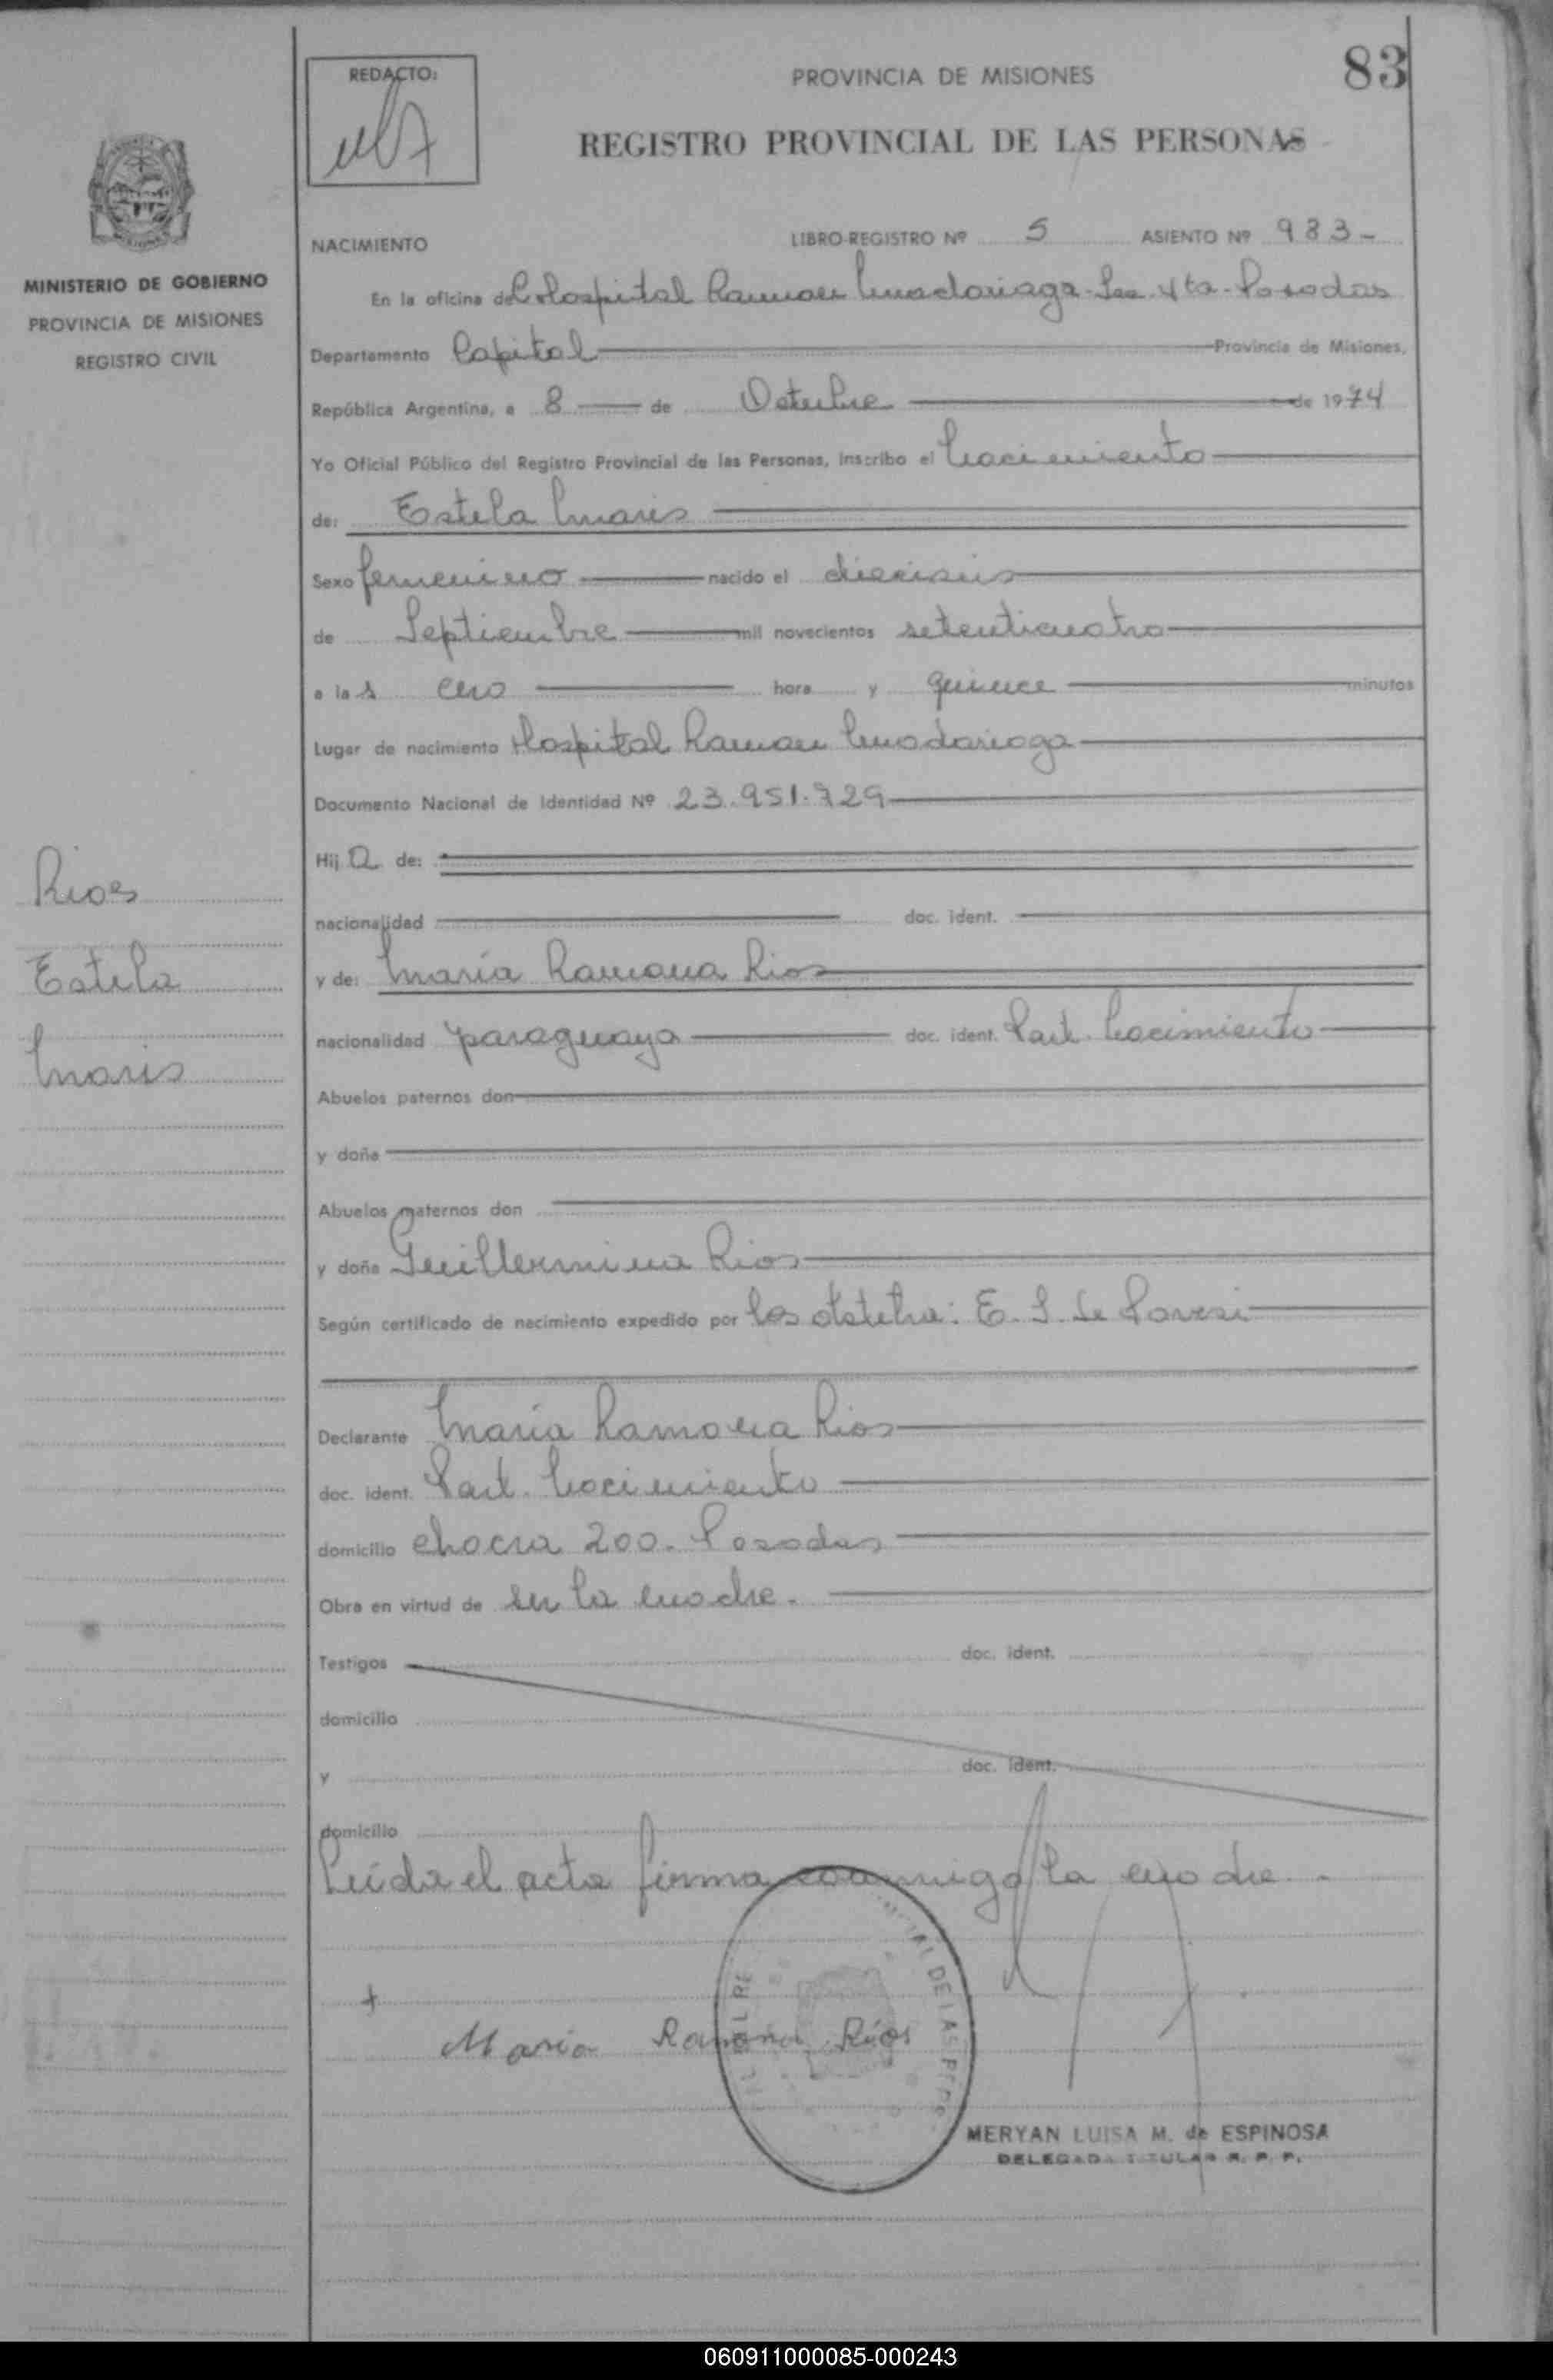 83
REDACTO:
PROVINCIA DE MISIONES
REGISTRO PROVINCIAL DE LAS PERSONAS
MINISTERIO DE GOBIERNO
PROVINCIA DE MISIONES
REGISTRO CIVIL
NACIMIENTO LIBRO-REGISTRO Nº 5 ASIENTO Nº 983-
En la oficina del Hospital Ramon Madariaga - Sec. 4ta - Posadas
Departamento Capital Provincia de Misiones,
República Argentina, a 8 de Octubre de 1974
Yo Oficial Público del Registro Provincial de las Personas, inscribo el Nacimiento
de: Estela Maris
Sexo femenino nacido el dieciseis
de Septiembre mil novecientos setenticuatro
a las cero hora y quince minutos
Lugar de nacimiento Hospital Ramon Madariaga
Documento Nacional de Identidad Nº 23.951.729
Hija de:
nacionalidad doc. ident.
y de: María Ramona Rios
nacionalidad paraguaya doc. ident. Part. Nacimiento
Abuelos paternos don
y doña
Abuelos maternos don
y doña Guillermina Rios
Según certificado de nacimiento expedido por la obstetra: E. S. de
Declarante María Ramona Rios
doc. ident. Part. Nacimiento
domicilio chacra 200. Posadas
Obra en virtud de ser la madre.
Testigos doc. ident.
domicilio
y doc. ident.
domicilio
Leída el acta firma conmigo la madre.
Maria Ramona Ríos
DE LAS PERS
MERYAN LUISA M. de ESPINOSA
DELEGADA TITULAR R. P. P.
Rios
Estela
Maris
060911000085-000243